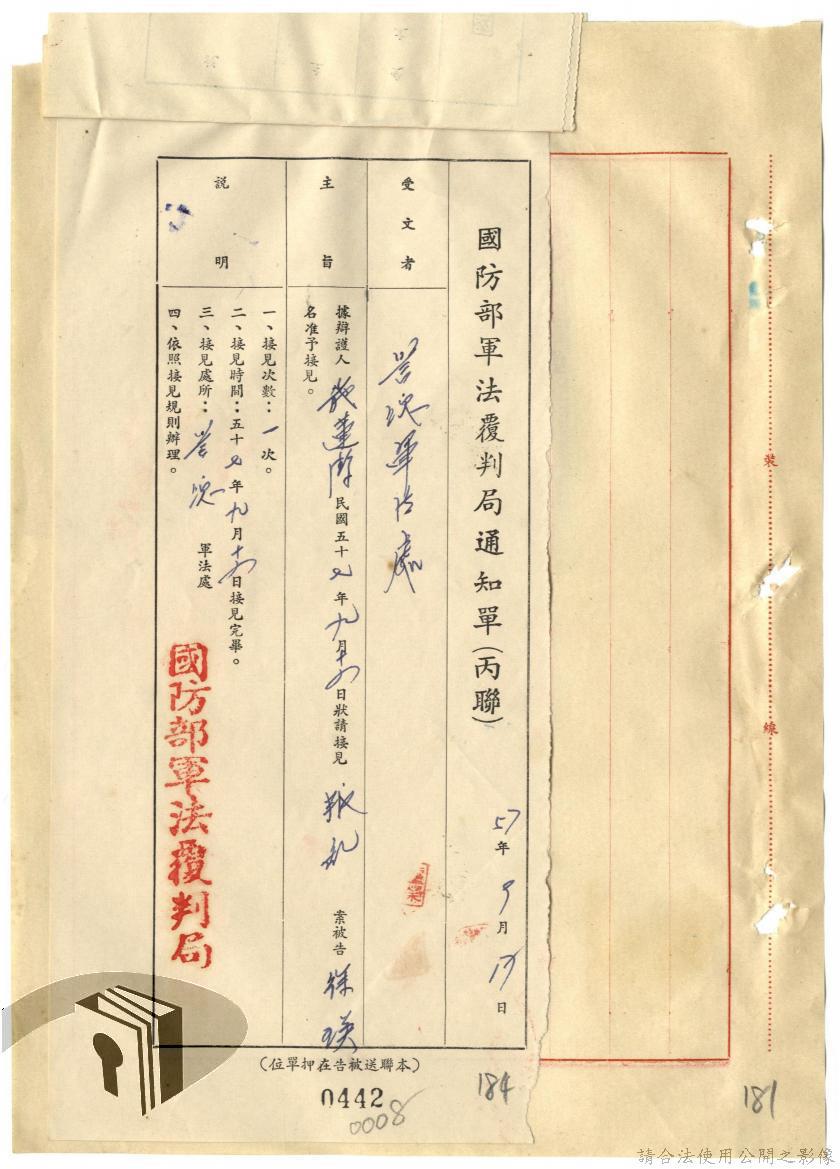 國防部軍法覆判局通知單(丙聯)
57年9月17日
受文者
警總軍法處
主旨
據辯護人
民國五十七年九月十六日狀請接見
叛亂
案被告
徐瑛
名准予接見。
說明
一、接見次數：一次。
二、接見時間：五十七年九月十六日接見完畢。
三、接見處所：警總軍法處
四、依照接見規則辦理。
國防部軍法覆判局
(本聯送被告在押單位)
0442
0008
184
181
裝
線
請合法使用公開之影像